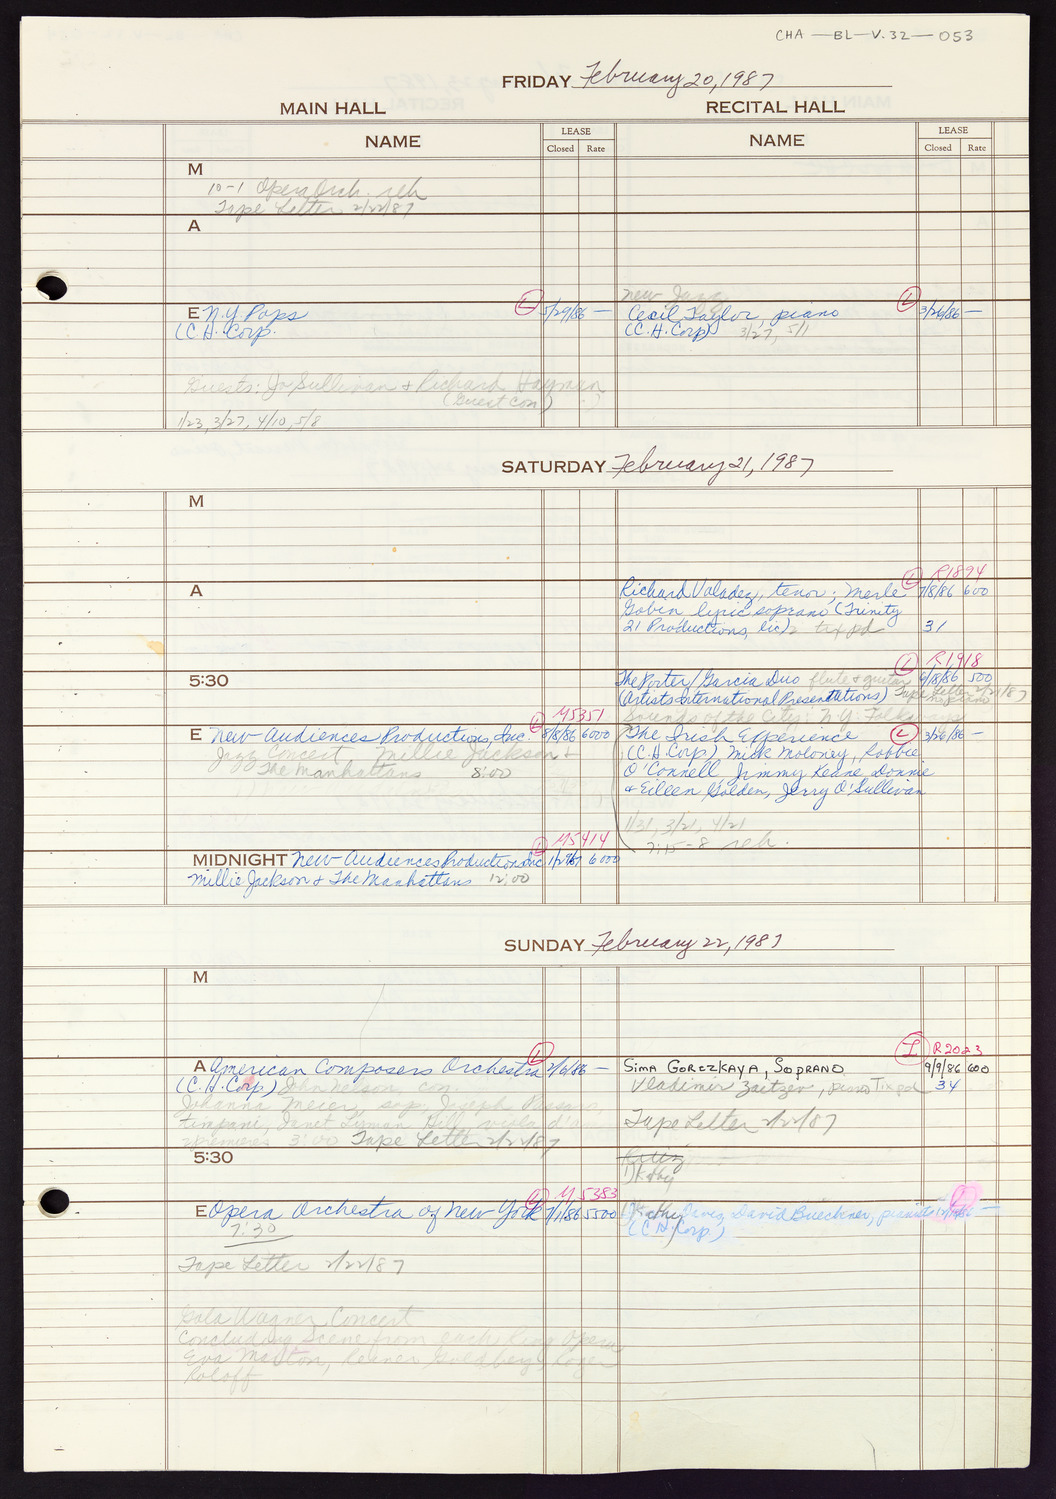 CHA-BL-V.32-053
FRIDAY February 20, 1987
MAIN HALL
RECITAL HALL
NAME
LEASE
Closed Rate
NAME
LEASE
Closed Rate
M
10-1 Opera Orch. reh
Tape Letter 2/22/87
A
E N.Y. Pops L 5/29/86 —
(C.H. Corp.
Guests: Jo Sullivan + Richard Hayman
(Guest Con)
1/23, 3/27, 4/10, 5/8
new Jazz
Cecil Taylor, piano L 3/26/86 —
(C.H. Corp) 3/27, 5/1
SATURDAY February 21, 1987
M
A
L R1894
Richard Valadez, tenor; Merle 7/8/86 600
Gobin lyric soprano (Trinity
21 Productions, Inc) tix pd 31
5:30
L R1918
The Porter/Garcia Duo flute + guitar 6/8/86 500
(Artists International Presentations) Tape Letter 2/21/87
no piano
L M5351
E New Audiences Productions, Inc. 8/8/86 6000
Jazz Concert Millie Jackson +
The Manhattans 8:00
Sounds of the City: N.Y. Folk
The Irish Experience L 3/26/86 —
(C.H. Corp) Mick Moloney, Robbie
O'Connell, Jimmy Keane, Donnie
+ Eileen Golden, Jerry O'Sullivan
1/31, 3/21, 4/21
7:15-8 reh.
L M5414
MIDNIGHT New Audiences Productions Inc 6000
Millie Jackson + The Manhattans 12:00
SUNDAY February 22, 1987
M
L
A American Composers Orchestra 2/6/86 —
(C.H. Corp) John Nelson, con.
Johanna Meier, sop. Joseph Passaro,
timpani, Janet Lyman Hill, viola d'
premieres 3:00 Tape Letter 2/22/87
L R2023
SIMA GORCZKAYA, SOPRANO 9/9/86 600
Vladimir Zaitzev, piano Tix pd 34
Tape Letter 2/22/87
5:30
L M5383
E Opera Orchestra of New York 7/1/86 5500
7:30
Tape Letter 2/22/87
David Buechner, pianist —
(C.H. Corp.)
Gala Wagner Concert
Concluding Scene from each Ring Opera
Eva Marton, Reiner Goldberg, Roger
Roloff